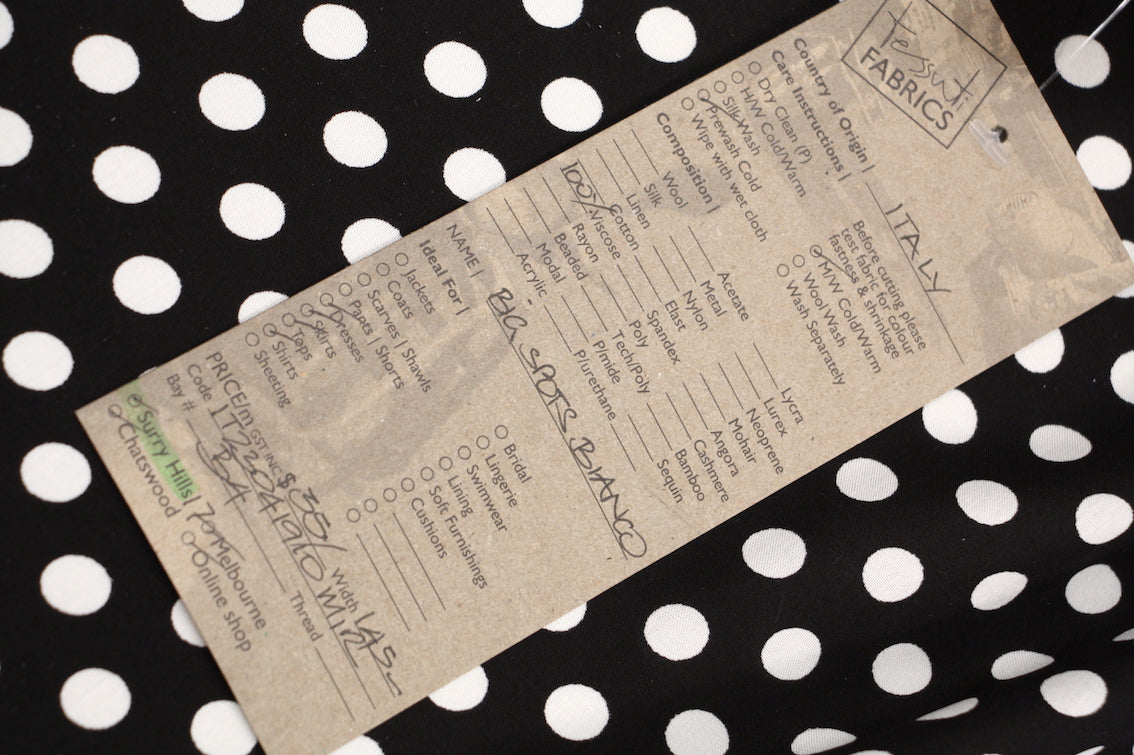 Tessuti
FABRICS
Country of Origin | ITALY
Care Instructions |
Dry Clean (P)
H/W Cold/Warm
Silk Wash
Prewash Cold
Wipe with wet cloth
Before cutting please
test fabric for colour
fastness & shrinkage
M/W Cold/Warm
Wool Wash
Wash Separately
Composition |
Wool
Silk
Linen
Cotton
100% Viscose
Rayon
Beaded
Modal
Acrylic
Acetate
Metal
Nylon
Elast
Spandex
Poly
Tech/Poly
P/mide
P/urethane
Lycra
Lurex
Neoprene
Mohair
Angora
Cashmere
Bamboo
Sequin
NAME | BIG SPOTS BIANCO
Ideal For |
Jackets
Coats
Scarves | Shawls
Pants | Shorts
Dresses
Skirts
Tops
Shirts
Sheeting
Bridal
Lingerie
Swimwear
Lining
Soft Furnishings
Cushions
PRICE/m GST INC $ 35/ Width 145
Code
Bay # Thread
Surry Hills | Melbourne
Chatswood Online shop